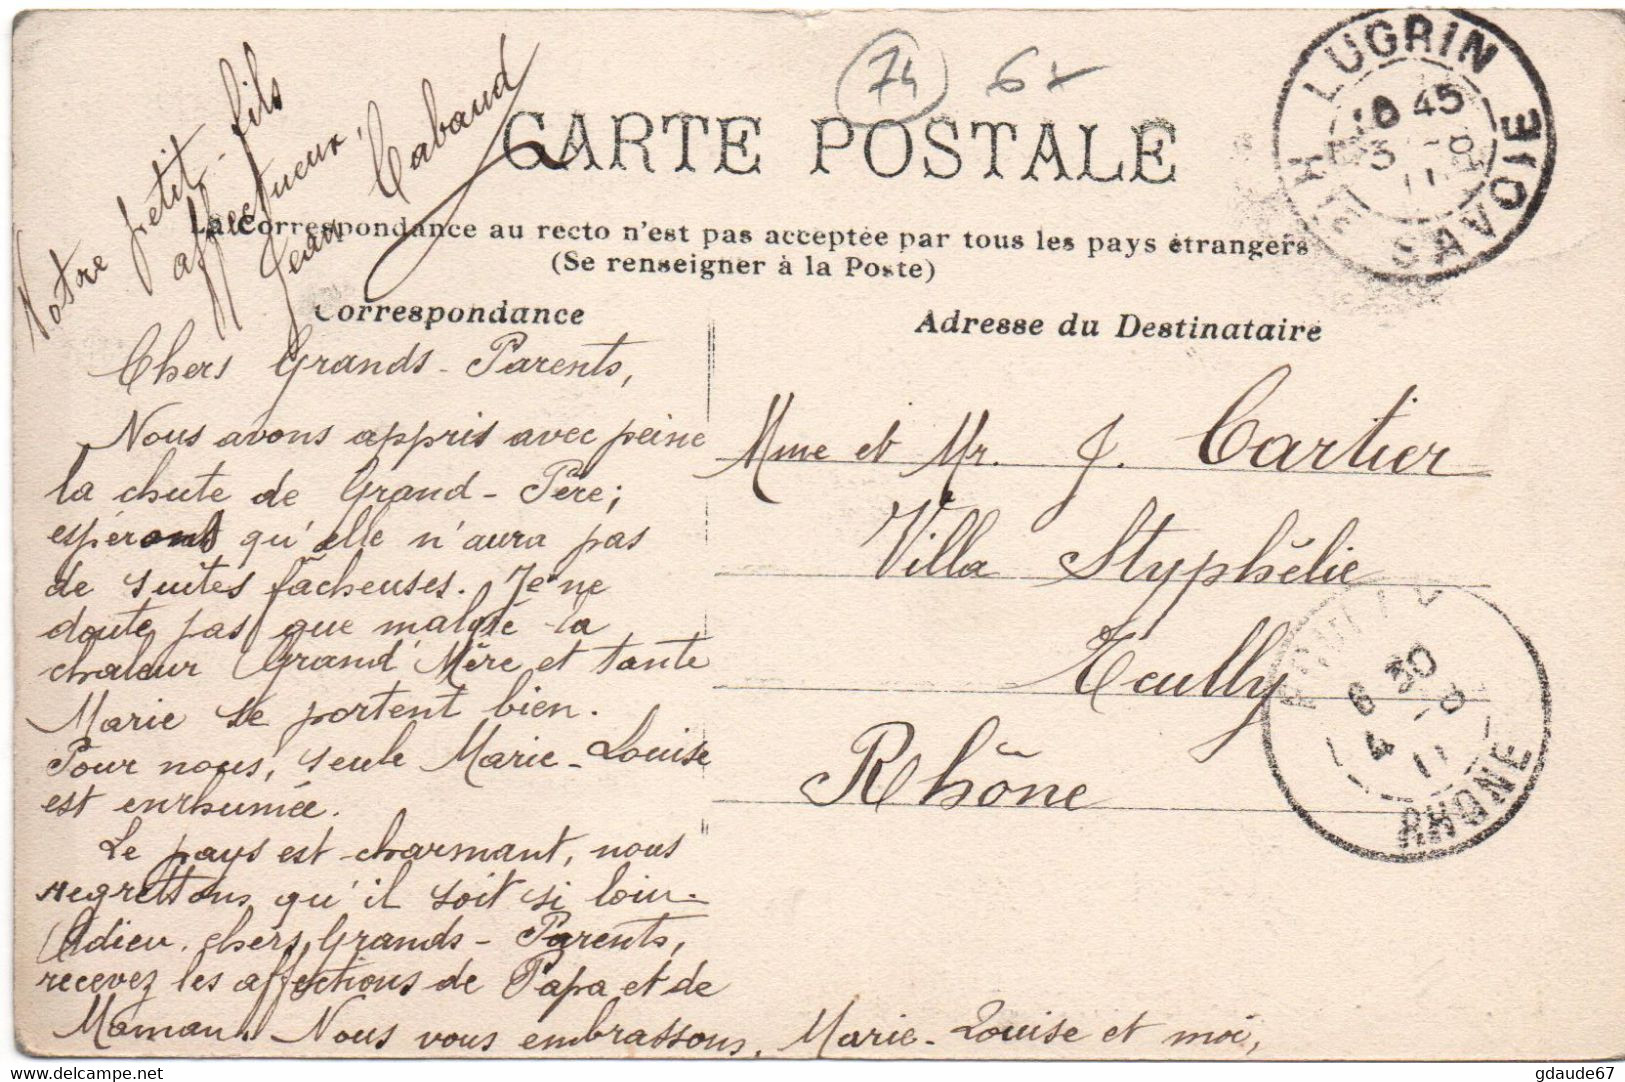 74 6x
CARTE POSTALE
La Correspondance au recto n'est pas acceptée par tous les pays étrangers
(Se renseigner à la Poste)
Correspondance
Adresse du Destinataire
LUGRIN
Hte SAVOIE
45
3 -8
11
Chers Grands-Parents,
Nous avons appris avec peine
la chute de Grand-Père;
espérons qu'elle n'aura pas
de suites fâcheuses. Je ne
doute pas que malgré la
chaleur Grand'Mère et tante
Marie se portent bien.
Pour nous, seule Marie-Louise
est enrhumée.
Le pays est charmant, nous
regrettons qu'il soit si loin.
Adieu, chers Grands-Parents,
recevez les affections de Papa et de
Maman. Nous vous embrassons, Marie-Louise et moi,
Votre petit-fils
affectueux,
Jean Cabaud
Mme et Mr. J. Cartier
Villa Styphélie
Ecully
Rhône
ECULLY
6 30
4 -8
11
RHONE
delcampe.net
gdaude67